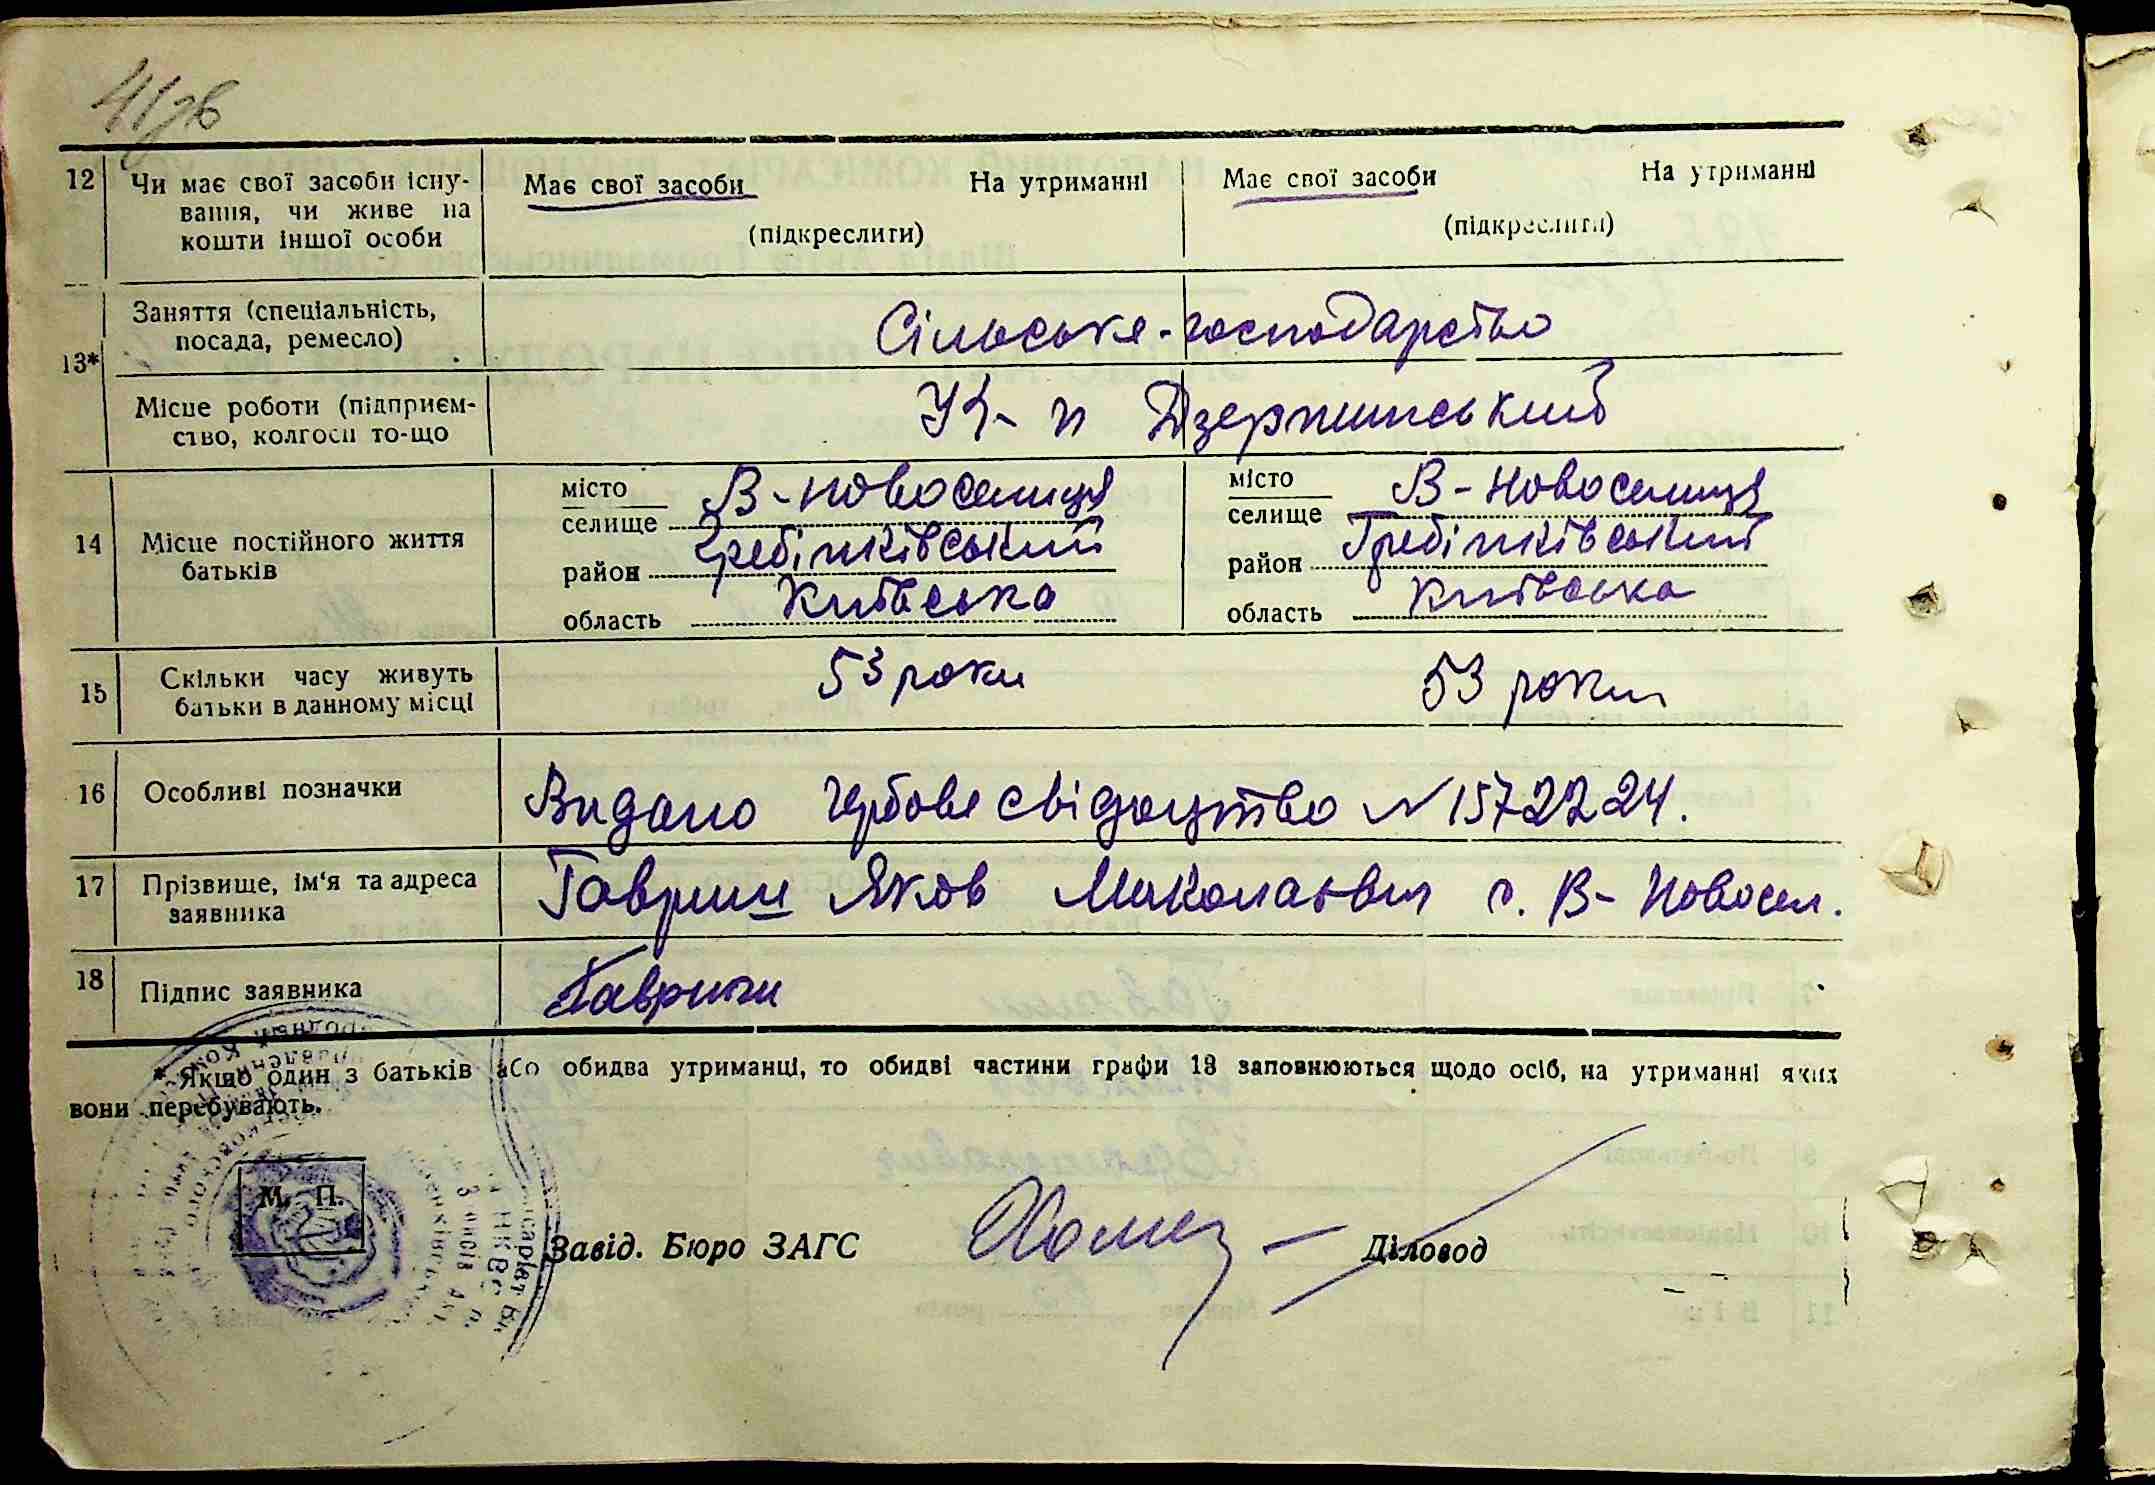 12 Чи має свої засоби існу- Має свої засоби На утриманні Має свої засоби На утриманні
вання, чи живе на
кошти іншої особи (підкреслити) (підкреслити)
13* Заняття (спеціальність,
посада, ремесло) Сільське-господарство
Місце роботи (підприєм-
ство, колгосп то-що Дзержинський
14 Місце постійного життя
батьків
місто В-Новоселиця місто В-Новоселиця
селище селище
район Гребінківський район Гребінківський
область Київська область Київська
15 Скільки часу живуть 53 роки 53 роки
батьки в данному місці
16 Особливі позначки Видано гербове свідоцтво N 1572224.
17 Прізвище, ім'я та адреса Гавриш Яков Миколаєвич с. В-Новосел.
заявника
18 Підпис заявника Гавриш
* Якщо один з батьків або обидва утриманці, то обидві частини графи 13 заповнюються щодо осіб, на утриманні яких
вони перебувають.
М. П.
Завід. Бюро ЗАГС Діловод